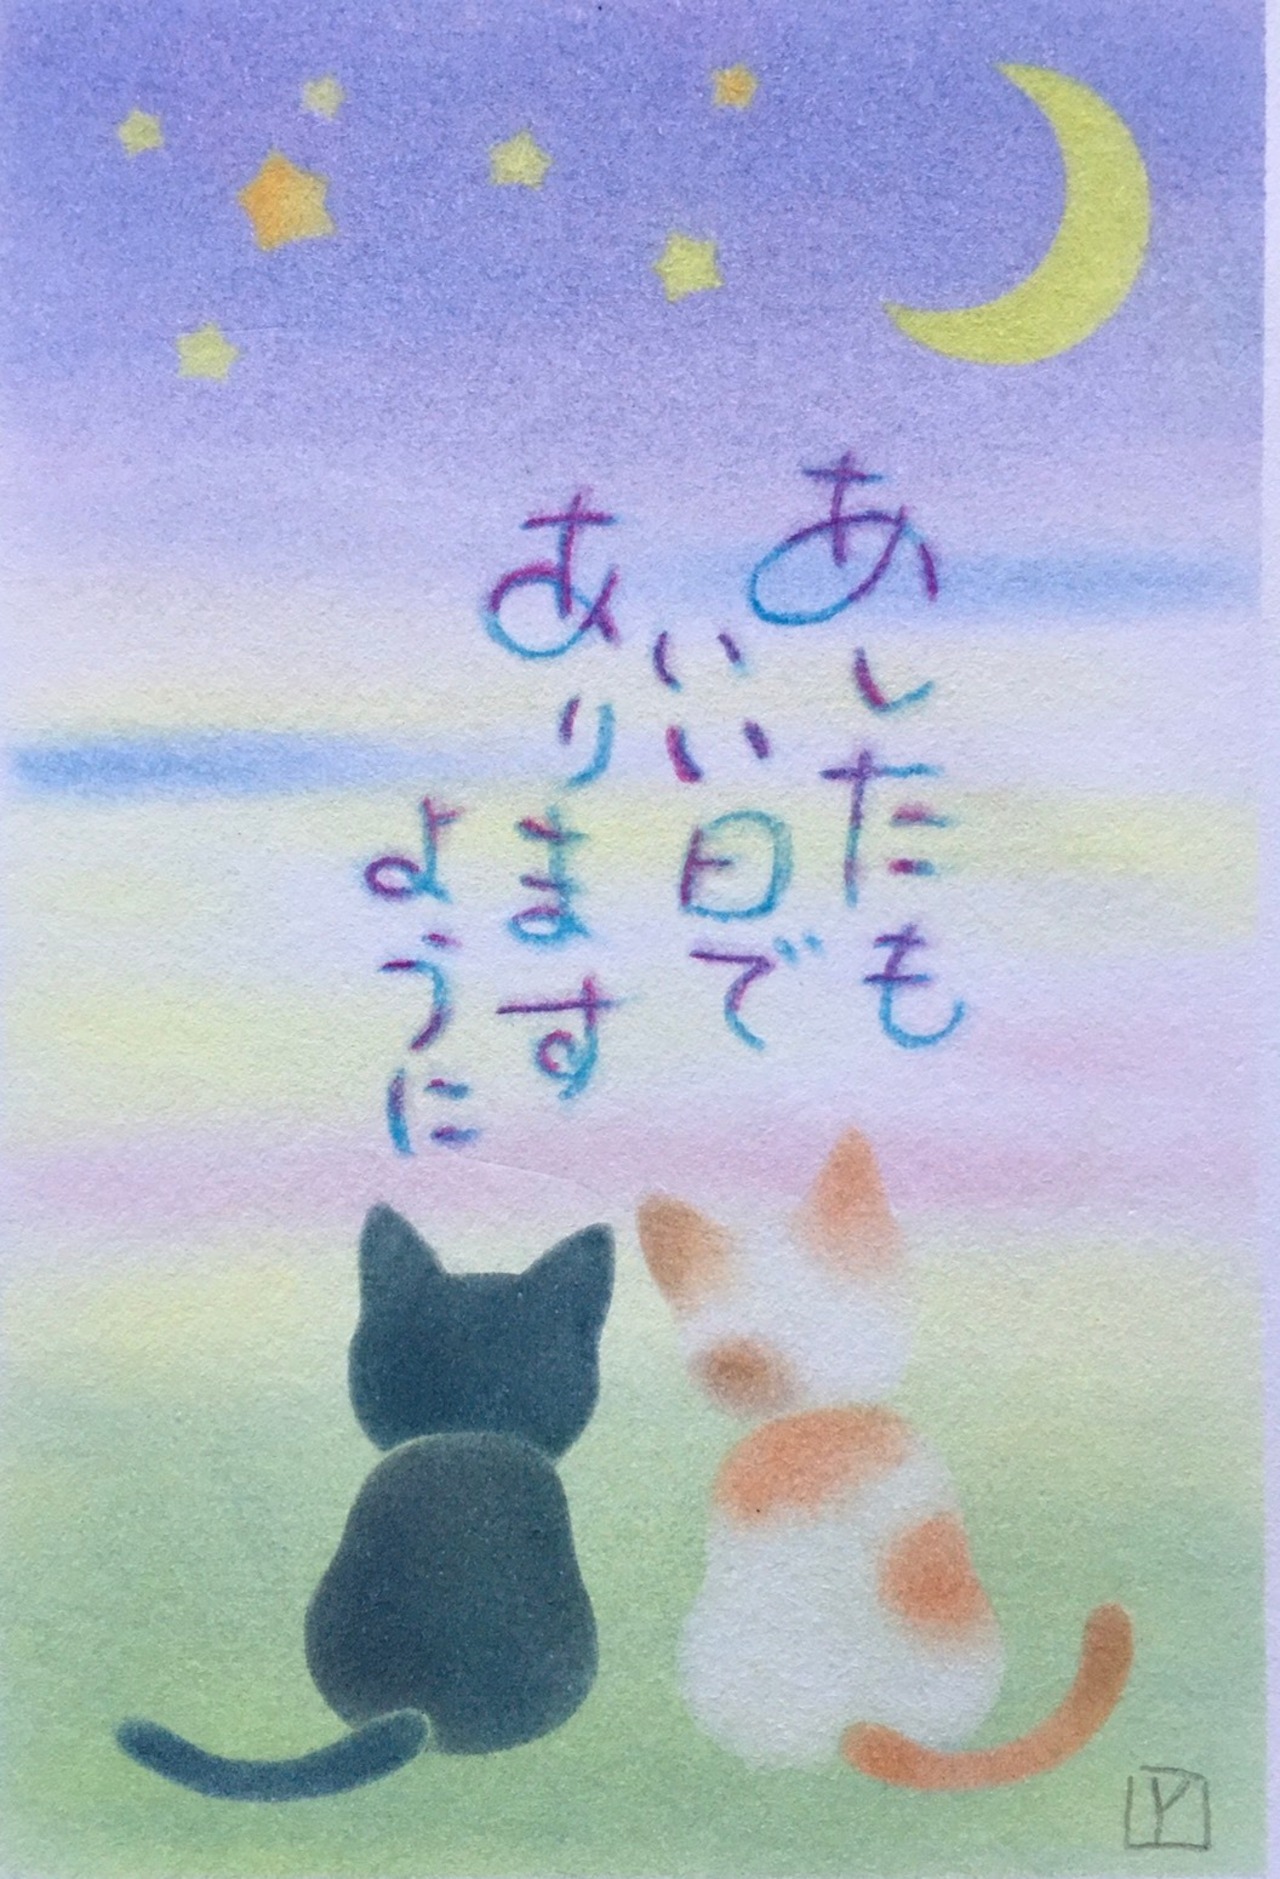 あしたも
いい日で
あります
ように
Y